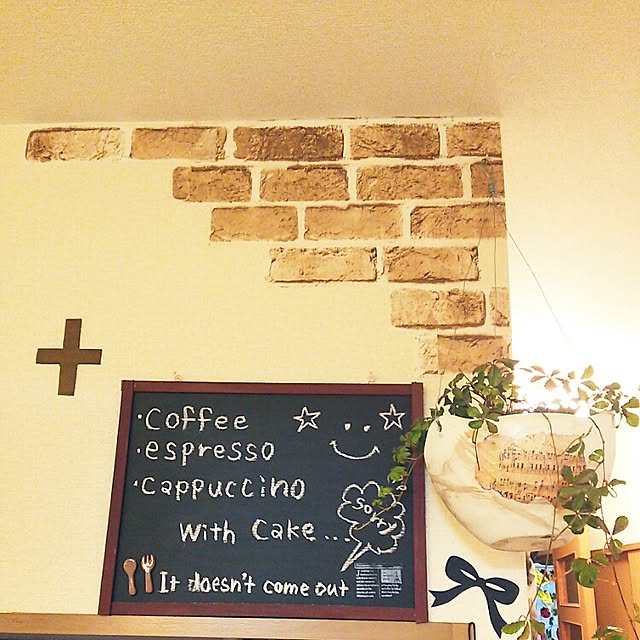 ·Coffee
·espresso
·Cappuccino
With Cake...
Sorry
It doesn't come out